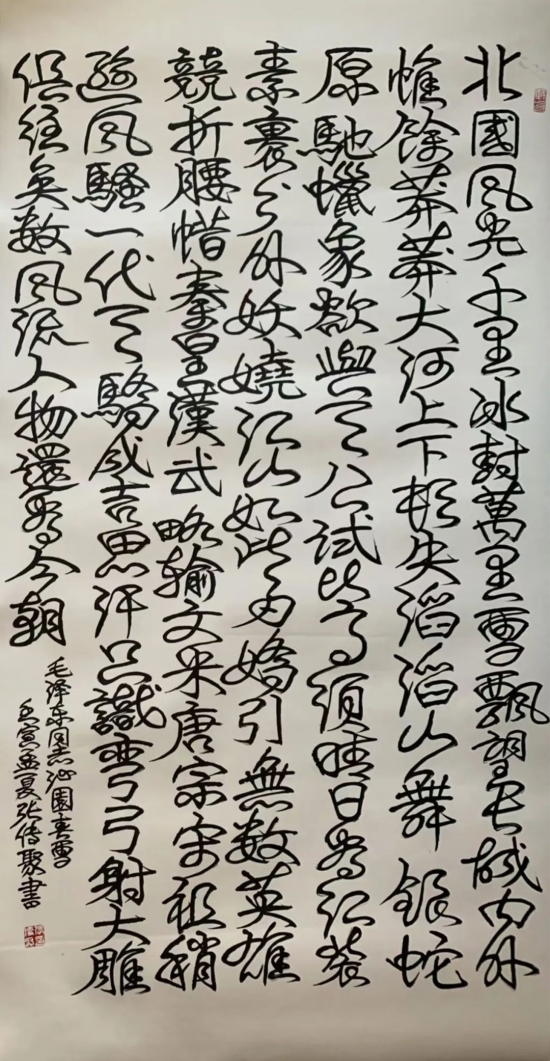 北國風光千里冰封萬里雪飄望長城内外
惟餘莽莽大河上下頓失滔滔山舞銀蛇
原馳蠟象欲與天公試比高須晴日看紅裝
素裹分外妖嬈江山如此多嬌引無数英雄
競折腰惜秦皇漢武略輸文采唐宗宋祖稍
遜風騷一代天驕成吉思汗只識彎弓射大雕
俱往矣数風流人物還看今朝
毛泽东同志沁園春雪
壬寅孟夏张传聚書